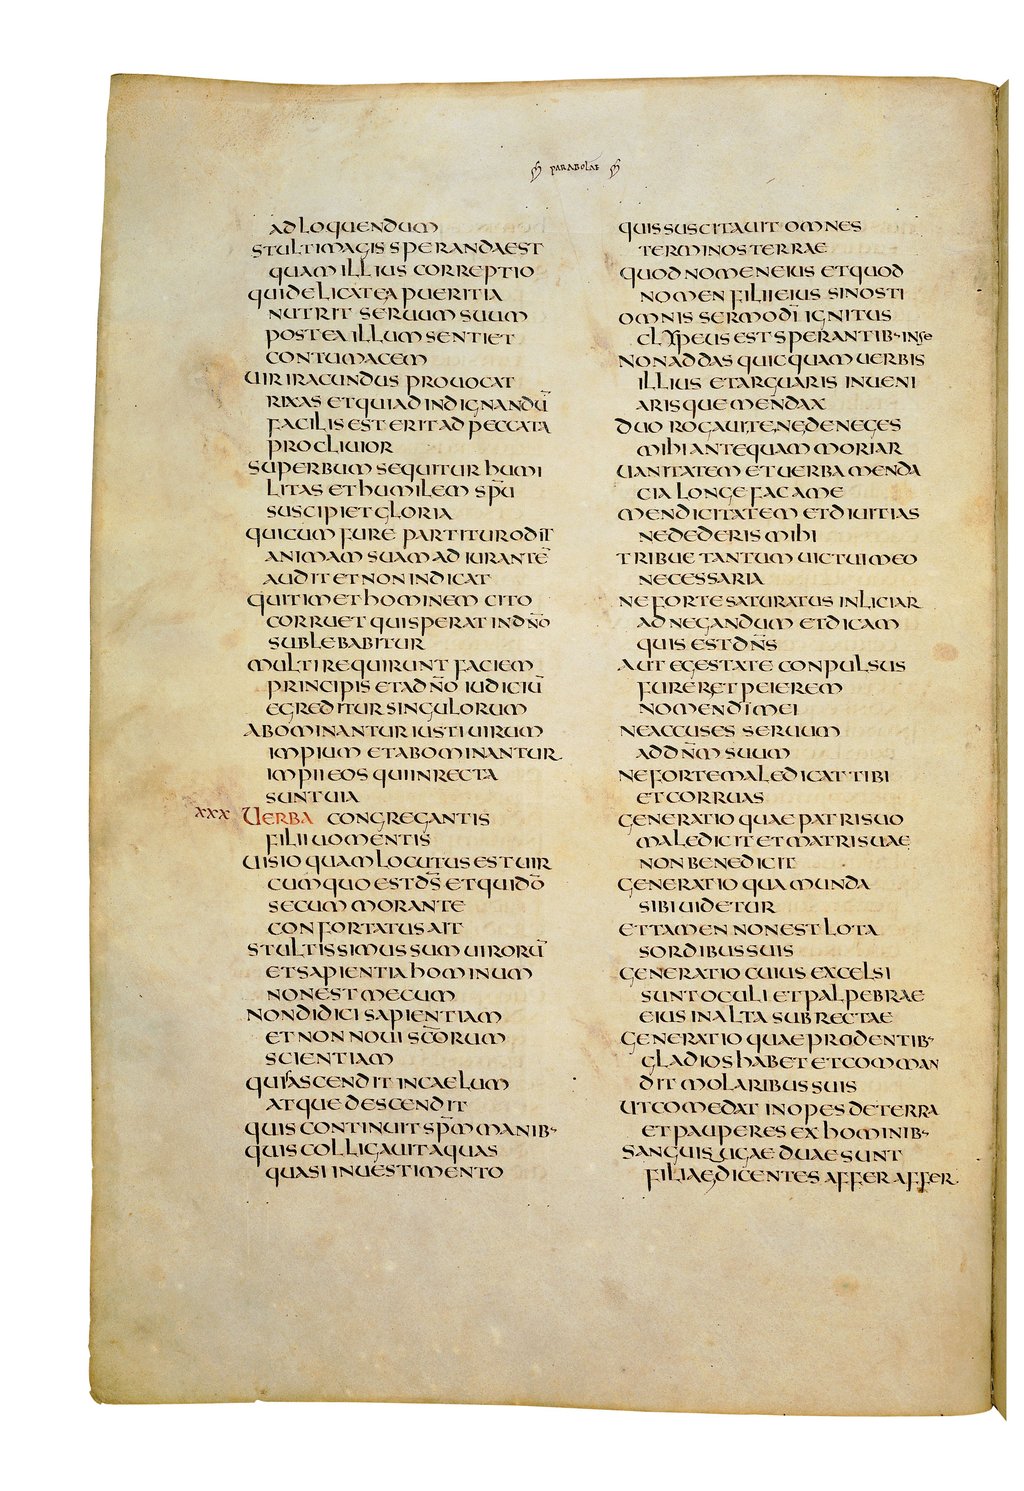 PARABOLAE
ADLOQUENDUM
STULTI MAGIS SPERANDA EST
QUAM ILLIUS CORREPTIO
QUI DELICATE A PUERITIA
NUTRIT SERUUM SUUM
POSTEA ILLUM SENTIET
CONTUMACEM
UIR IRACUNDUS PROUOCAT
RIXAS ET QUI AD INDIGNANDŪ
FACILIS EST ERIT AD PECCATA
PROCLIUIOR
SUPERBUM SEQUITUR HUMI
LITAS ET HUMILEM SPŪ
SUSCIPIET GLORIA
QUI CUM FURE PARTITUR ODIT
ANIMAM SUAM ADIURANTĒ
AUDIT ET NON INDICAT
QUI TIMET HOMINEM CITO
CORRUET QUI SPERAT IN DN̄O
SUBLEBABITUR
MULTI REQUIRUNT FACIEM
PRINCIPIS ET A DN̄O IUDICIŪ
EGREDITUR SINGULORUM
ABOMINANTUR IUSTI UIRUM
IMPIUM ET ABOMINANTUR
IMPII EOS QUI IN RECTA
SUNT UIA
XXX UERBA CONGREGANTIS
FILII UOMENTIS
UISIO QUAM LOCUTUS EST UIR
CUM QUO EST DS̄ ET QUI DŌ
SECUM MORANTE
CONFORTATUS AIT
STULTISSIMUS SUM UIRORŪ
ET SAPIENTIA HOMINUM
NON EST MECUM
NON DIDICI SAPIENTIAM
ET NON NOUI SC̄ORUM
SCIENTIAM
QUIS ASCENDIT IN CAELUM
ATQUE DESCENDIT
QUIS CONTINUIT SPM̄ MANIB·
QUIS COLLIGAUIT AQUAS
QUASI IN UESTIMENTO
QUIS SUSCITAUIT OMNES
TERMINOS TERRAE
QUOD NOMEN EIUS ET QUOD
NOMEN FILII EIUS SI NOSTI
OMNIS SERMO DĪ IGNITUS
CLYPEUS EST SPERANTIB· IN SE
NON ADDAS QUICQUAM UERBIS
ILLIUS ET ARGUARIS INUENI
ARISQUE MENDAX
DUO ROGAUI TE NE DENEGES
MIHI ANTEQUAM MORIAR
UANITATEM ET UERBA MENDA
CIA LONGE FAC A ME
MENDICITATEM ET DIUITIAS
NE DEDERIS MIHI
TRIBUE TANTUM UICTUI MEO
NECESSARIA
NE FORTE SATURATUS INLICIAR
AD NEGANDUM ET DICAM
QUIS EST DN̄S
AUT EGESTATE CONPULSUS
FURER ET PEIEREM
NOMEN DĪ MEI
NE ACCUSES SERUUM
AD DN̄M SUUM
NE FORTE MALEDICAT TIBI
ET CORRUAS
GENERATIO QUAE PATRI SUO
MALEDICIT ET MATRI SUAE
NON BENEDICIT
GENERATIO QUA MUNDA
SIBI UIDETUR
ET TAMEN NON EST LOTA
SORDIBUS SUIS
GENERATIO CUIUS EXCELSI
SUNT OCULI ET PALPEBRAE
EIUS IN ALTA SUBRECTAE
GENERATIO QUAE PRO DENTIB·
GLADIOS HABET ET COMMAN
DIT MOLARIBUS SUIS
UT COMEDAT INOPES DE TERRA
ET PAUPERES EX HOMINIB·
SANGUISUGAE DUAE SUNT
FILIAE DICENTES AFFER AFFER